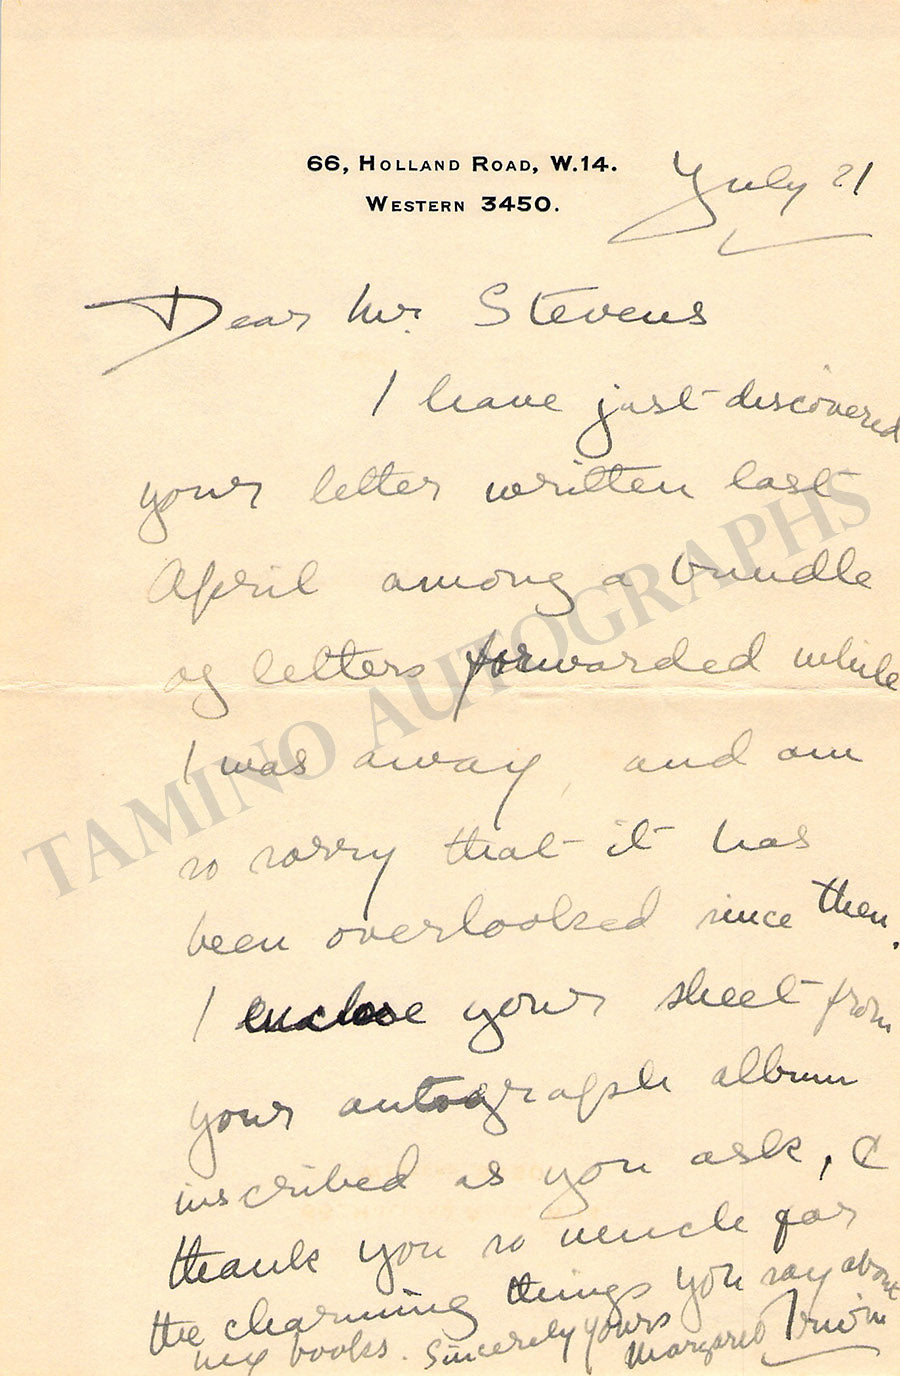 66, Holland Road, W.14.
Western 3450.
July 21
Dear Mr. Stevens
I have just discovered
your letter written last
April among a bundle
of letters forwarded while
I was away, and am
so sorry that it has
been overlooked since then.
I enclose your sheet from
your autograph album
inscribed as you ask, &
thank you so much for
the charming things you say about
my books. Sincerely yours
Margaret Irwin
TAMINO AUTOGRAPHS